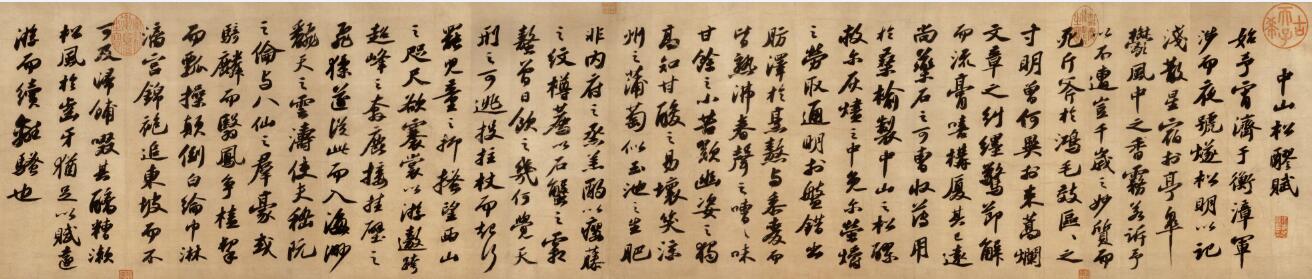 中山松醪賦
始予宵濟于衡漳軍
涉而夜號燧松明以記
淺散星宿於亭皋
鬱風中之香霧若訴予
以不遭豈千歲之妙質而
死斤斧於鴻毛效區區之
寸明曾何異於束蒿爛
文章之糾纏驚節解
而流膏嘻構廈其已遠
尚藥石之可曹收薄用
於桑榆製中山之松醪
救爾灰燼之中免爾螢爝
之勞取通明於盤錯出
肪澤於烹熬與黍麥而
皆熟沸舂聲之嘈嘈味
甘餘之小苦歎幽姿之獨
高知甘酸之易壞笑涼
州之蒲萄似玉池之生肥
非內府之蒸羔酌以癭藤
之紋樽薦以石蟹之霜
螯曾日飲之幾何覺天
刑之可逃投拄杖而起行
罷兒童之抑搔望西山
之咫尺欲褰裳以游遨跨
超峰之奔鹿接挂壁之
飛猱遂從此而入海渺
翻天之雲濤使夫嵇阮
之倫與八仙之羣豪或
騎麟而翳鳳爭榼挈
而瓢操顛倒白綸巾淋
漓宮錦袍追東坡而不
可及歸餔歠其醨糟漱
松風於齒牙猶足以賦遠
游而續離騷也
古希天子